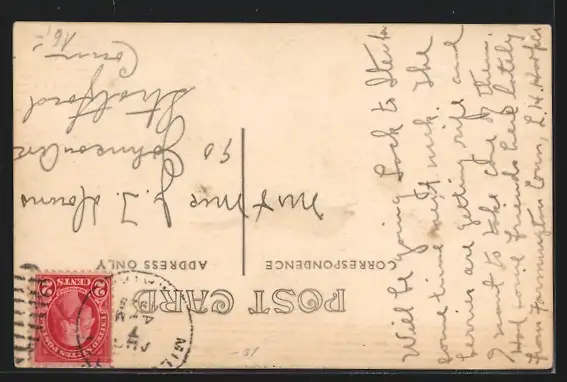 POST CARD
CORRESPONDENCE
ADDRESS ONLY
Will be going back to
some time next week. The
berries are getting ripe and
I want to take care of them.
Had some friends here lately
from Farmington Conn, L. H. Harper
Mr & Mrs J. T. Downs
90
Johnson Ave
Stratford
Conn
UNITED STATES POSTAGE
2 CENTS 2
MIL